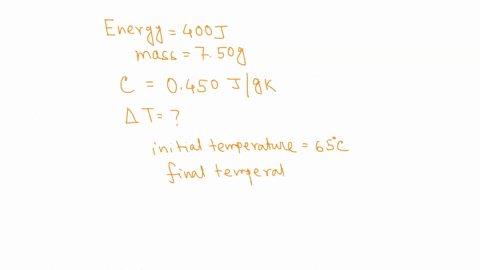 Energy = 400J
mass = 7.50g
C = 0.450 J/gK
ΔT = ?
initial temperature = 65°C
final temperat